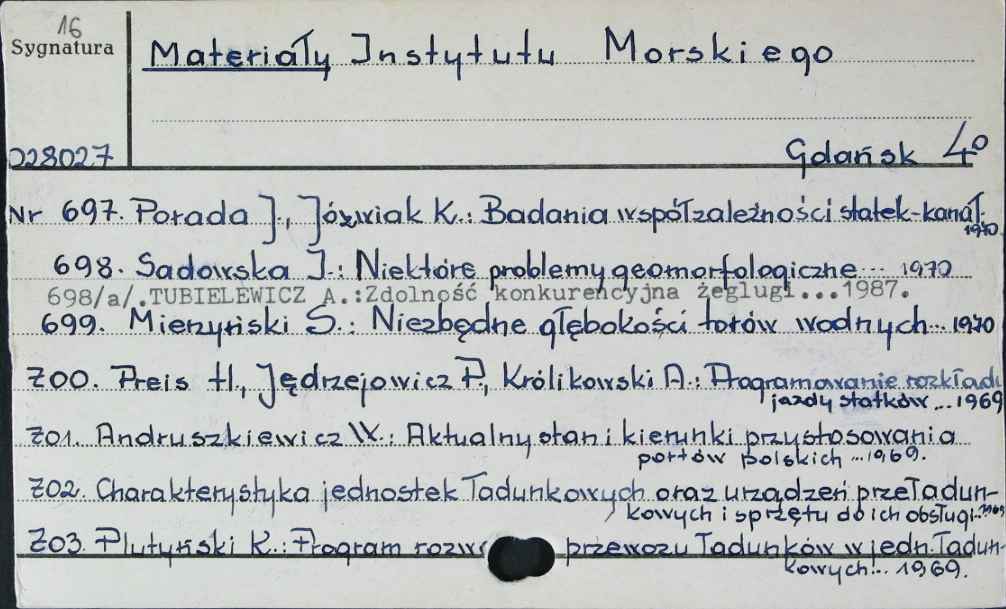 16
Sygnatura
Materiały Instytutu Morskiego
D28027
Gdańsk 4°
Nr 697. Porada J., Jóźwiak K.: Badania współzależności statek-kanał.
1970.
698. Sadowska I.: Niektóre problemy geomorfologiczne... 1970
698/a/.TUBIELEWICZ A.:Zdolność konkurencyjna żeglugi...1987.
699. Mierzyński S.: Niezbędne głębokości torów wodnych... 1970
700. Preis H., Jędrzejowicz P., Królikowski A.: Programowanie rozkładu
jazdy statków ... 1969
701. Andruszkiewicz W.: Aktualny stan i kierunki przystosowania
portów polskich ...1969.
702. Charakterystyka jednostek ładunkowych oraz urządzeń przeładun-
kowych i sprzętu do ich obsługi...1969
703. Plutyński K.: Program przewozu ładunków w jedn. ładun-
kowych!.. 1969.